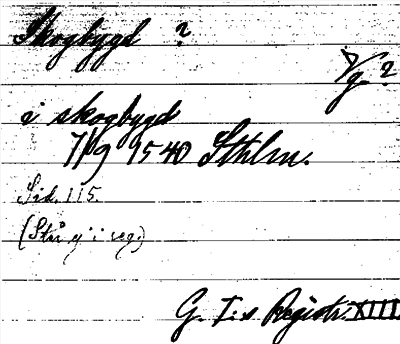 Skogbygd ?
Vg. ?
i skogbygd
7/9 1540 Sthlm.
Sid. 115.
(Står ej i reg.)
G. I:s Registr. XIII.